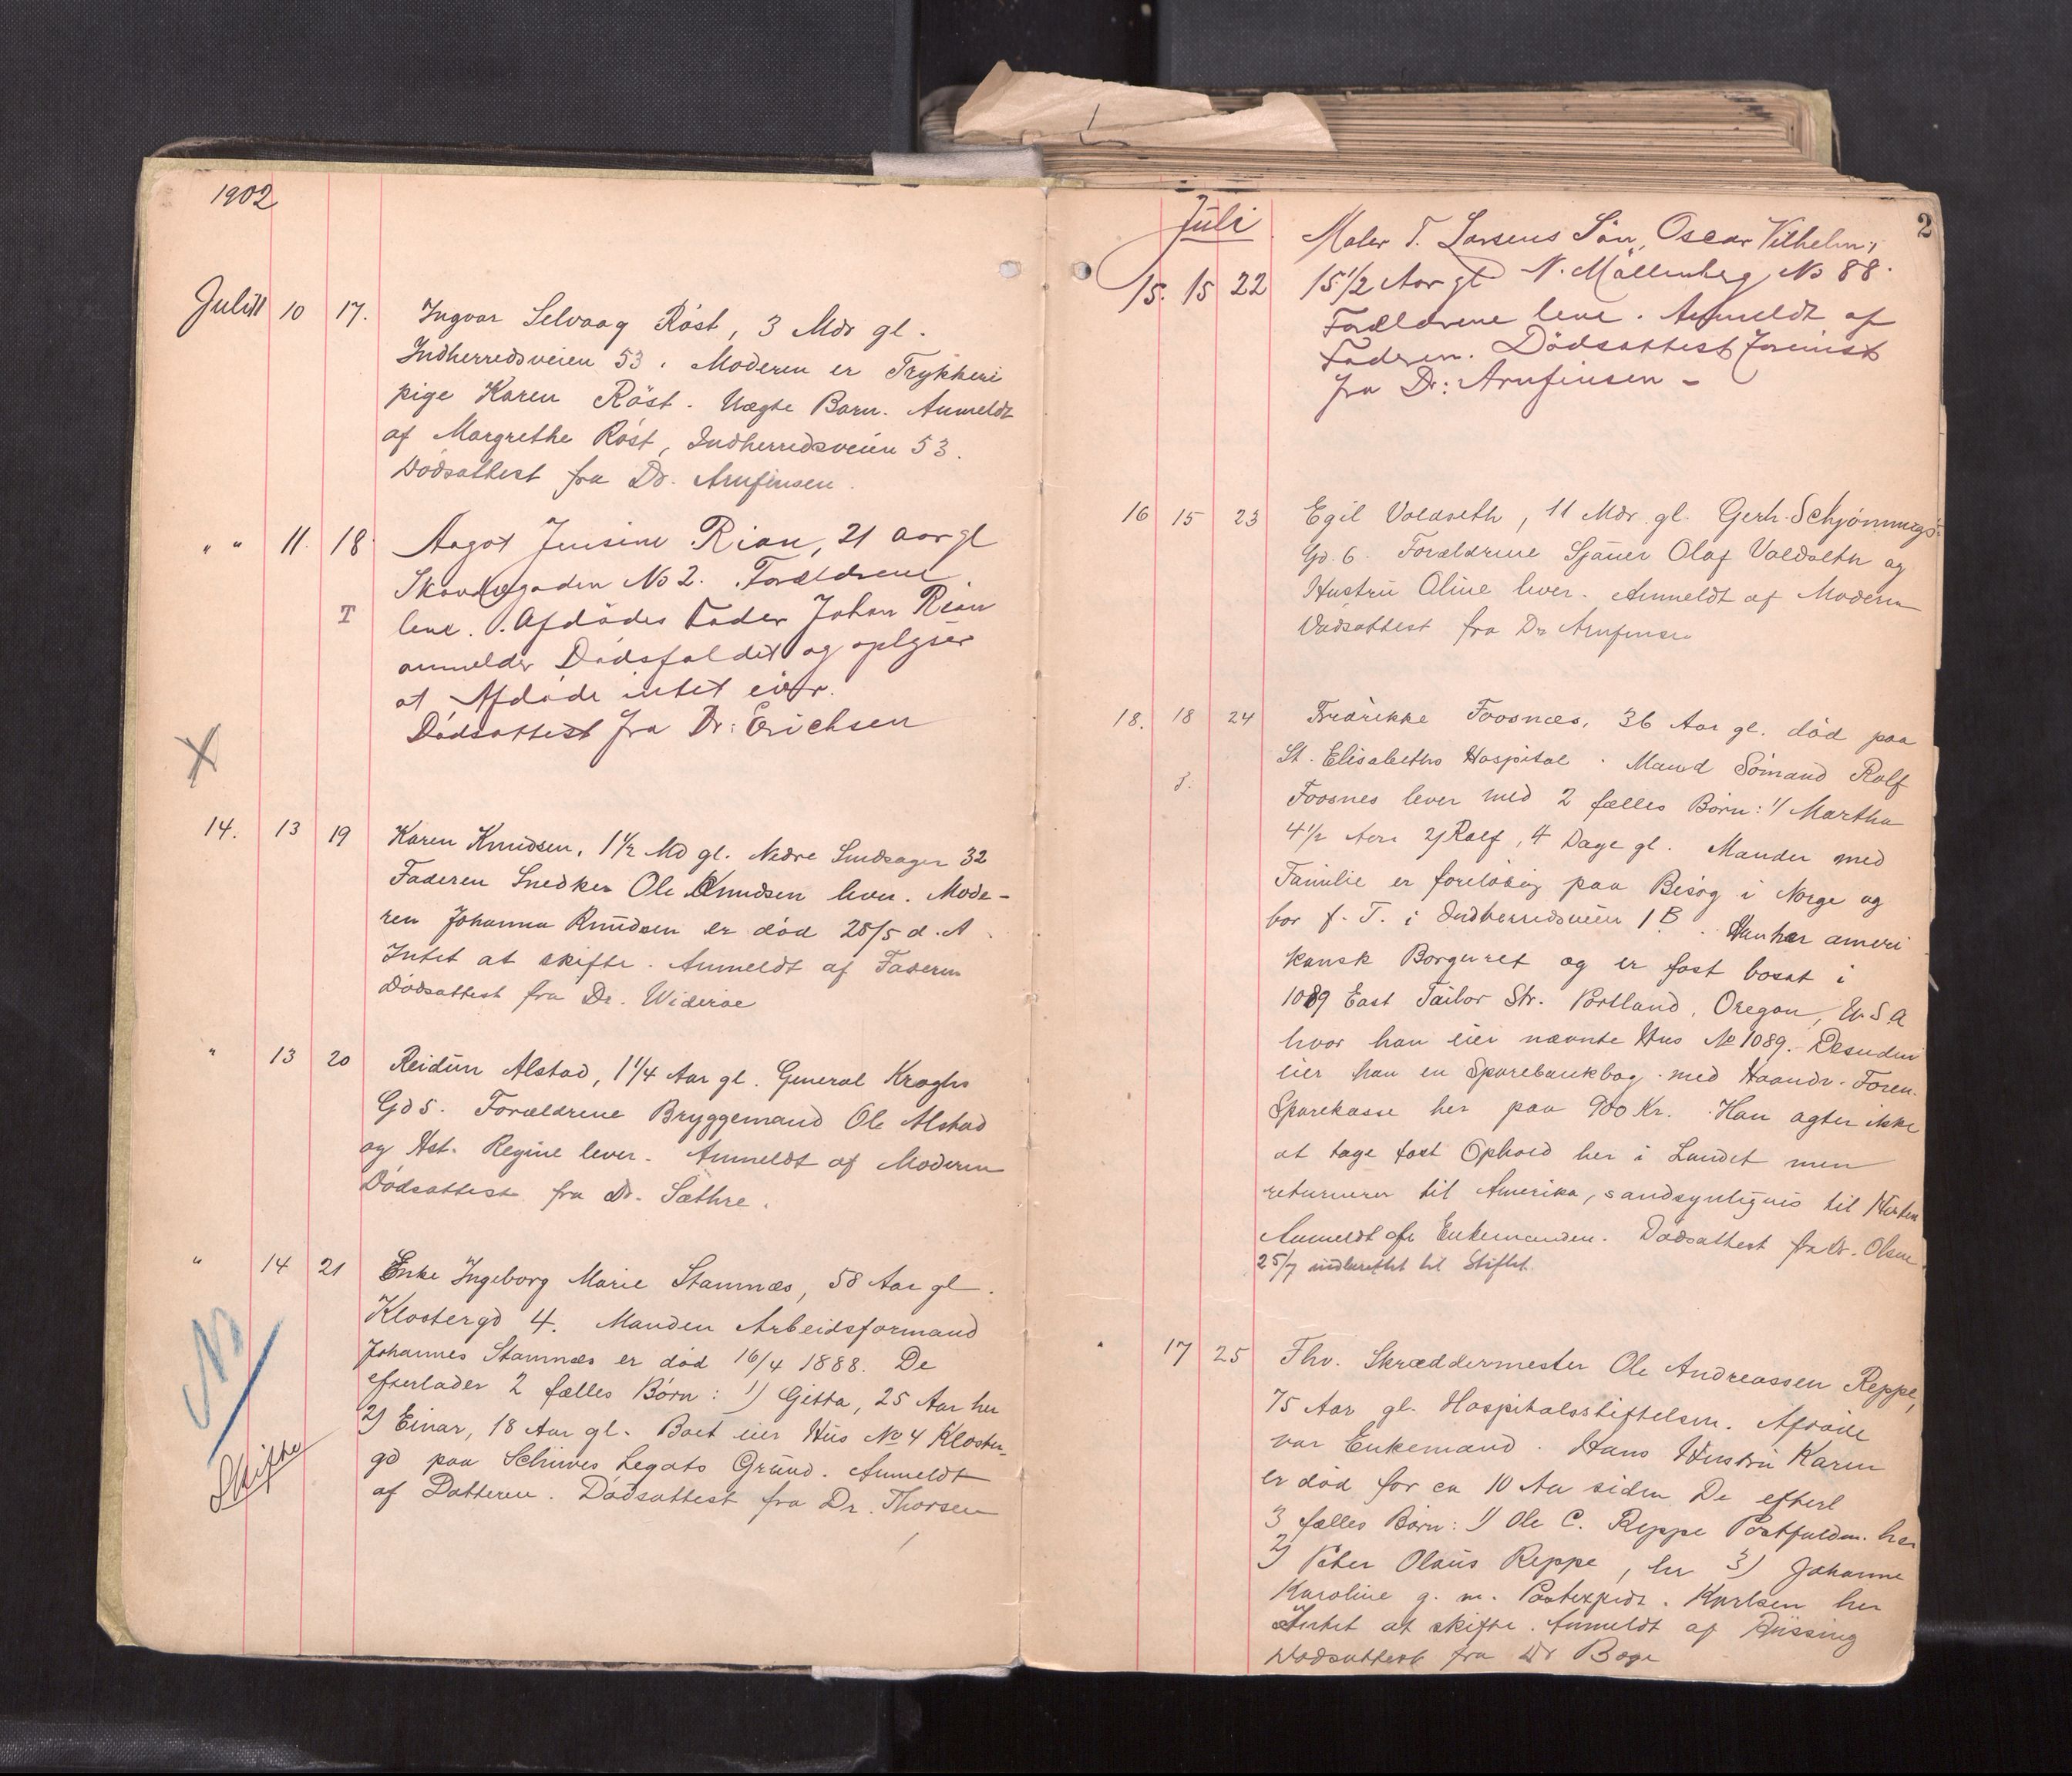 1902
Juli 11 10 17. Ingvar Selvaag Röst, 3 Mdr gl.
Indherredsveien 53. Moderen er Trykkeri
pige Karen Röst. Uægte Barn. Anmeldt
af Margrethe Röst, Indherredsveien 53.
Dödsattest fra Dr. Arnfinsen.
" " 11. 18 Aagot Jensine Rian, 21 aar gl
gaden No 2. Forældrene
T
leve. Afdödes Fader Johan Rian
anmelder Dödsfaldet og oplyser
at Afdöde intet eier.
Dödsattest fra Dr: Erichsen
X
14. 13 19 Karen Knudsen, 1½ Md gl. Nedre 32
Faderen Snedker Ole Knudsen lever. Mode-
ren Johanna Knudsen er död 25/5 d. A.
Intet at skifte. Anmeldt af Faderen
Dödsattest fra Dr. Wideröe
" 13 20 Reidun Alstad, 1¼ Aar gl. General Kroghs
Gd 5. Forældrene Bryggemand Ole Alstad
og Hst. Regine lever. Anmeldt af Moderen
Dödsattest fra Dr. Sæthre.
" 14 21 Enke Ingeborg Marie Stamnæs, 58 Aar gl.
Klostergd 4. Manden Arbeidsformand
Johannes Stamnæs er död 16/4 1888. De
efterlader 2 fælles Börn: 1) Gitta, 25 Aar her
2) Einar, 18 Aar gl. Boet eier Hus No 4 Kloster-
gd paa Legats Grund. Anmeldt
af Datteren. Dödsattest fra Dr. Thorsen
Skifte
2
Juli
Maler T. Larsens Sön, Oscar Vilhelm,
15. 15 22 15½ Aar gl N. Möllenberg No 88.
Forældrene leve. Anmeldt af
Faderen. Dödsattest forevist
fra Dr: Arnfinsen -
16 15 23 Egil Voldseth, 11 Mdr. gl. Gerh. Schjönnings
Gd. 6. Forældrene Sjauer Olaf Voldseth og
Hustru Oline lever. Anmeldt af Moderen
Dödsattest fra Dr Arnfinsen
18. 18 24 Fredrikke Foosnæs, 36 Aar gl. död paa
St. Elisabeths Hospital. Mand Sömand Rolf
Foosnes lever med 2 fælles Börn: 1/ Martha
4½ Aar 2/ Rolf, 4 Dage gl. Manden med
Familie er forelöbig paa Besög i Norge og
bor f. T. i Indherredsveien 1 B. Han har ameri
kansk Borgerret og er fast bosat i
1089 East Tailor Str. Portland, Oregon, U.S.A
hvor han eier nævnte Hus No 1089. Desuden
eier han en Sparebankbog med Haandv. Foren.
Sparekasse her paa 900 Kr. Han agter ikke
at tage fast Ophold her i Landet men
returnerer til Amerika, sandsynligvis til Hösten
Anmeldt af Enkemanden. Dödsattest fra Dr. Olsen
25/7 indberettet til Stiftet.
" 17 25 Fhv. Skræddermester Ole Andreassen Reppe,
75 Aar gl. Hospitalsstiftelsen. Afdöde
var Enkemand. Hans Hustru Karen
er död for ca 10 Aar siden De efterl
3 fælles Börn: 1) Ole C. Reppe Postfuldm. her
2) Peter Olaus Reppe, her 3) Johanne
Karoline g. m. Postexped. Karlsen her
Intet at skifte. Anmeldt af Rüssing
Dödsattest fra Dr